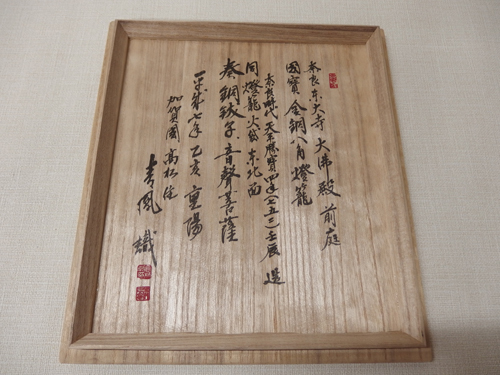 奈良東大寺大佛殿前庭
國寶金銅八角燈籠
奈良時代天平勝寳四年(七五二)壬辰造
同燈籠火袋東北面
奏銅鈸子音聲菩薩
平成七年乙亥重陽
加賀國高松住
青鳳識